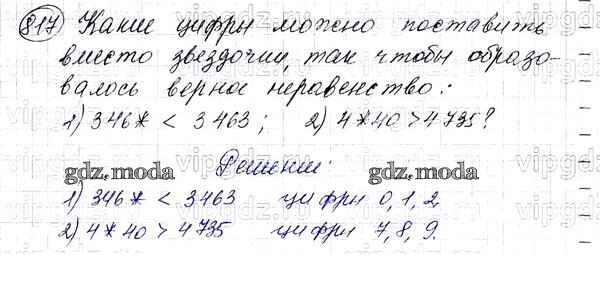 817) Какие цифры можно поставить
вместо звездочки, так чтобы образо-
валось верное неравенство:
1) 346* < 3 463; 2) 4*40 > 4 735?
Решение:
gdz.moda gdz.moda
1) 346* < 3463 цифры 0, 1, 2.
2) 4*40 > 4735 цифры 7, 8, 9.
gdz.moda gdz.moda